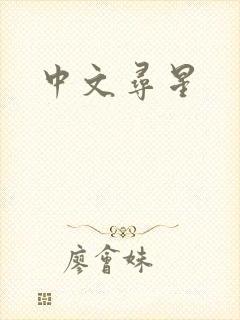 中文尋星
廖會妹